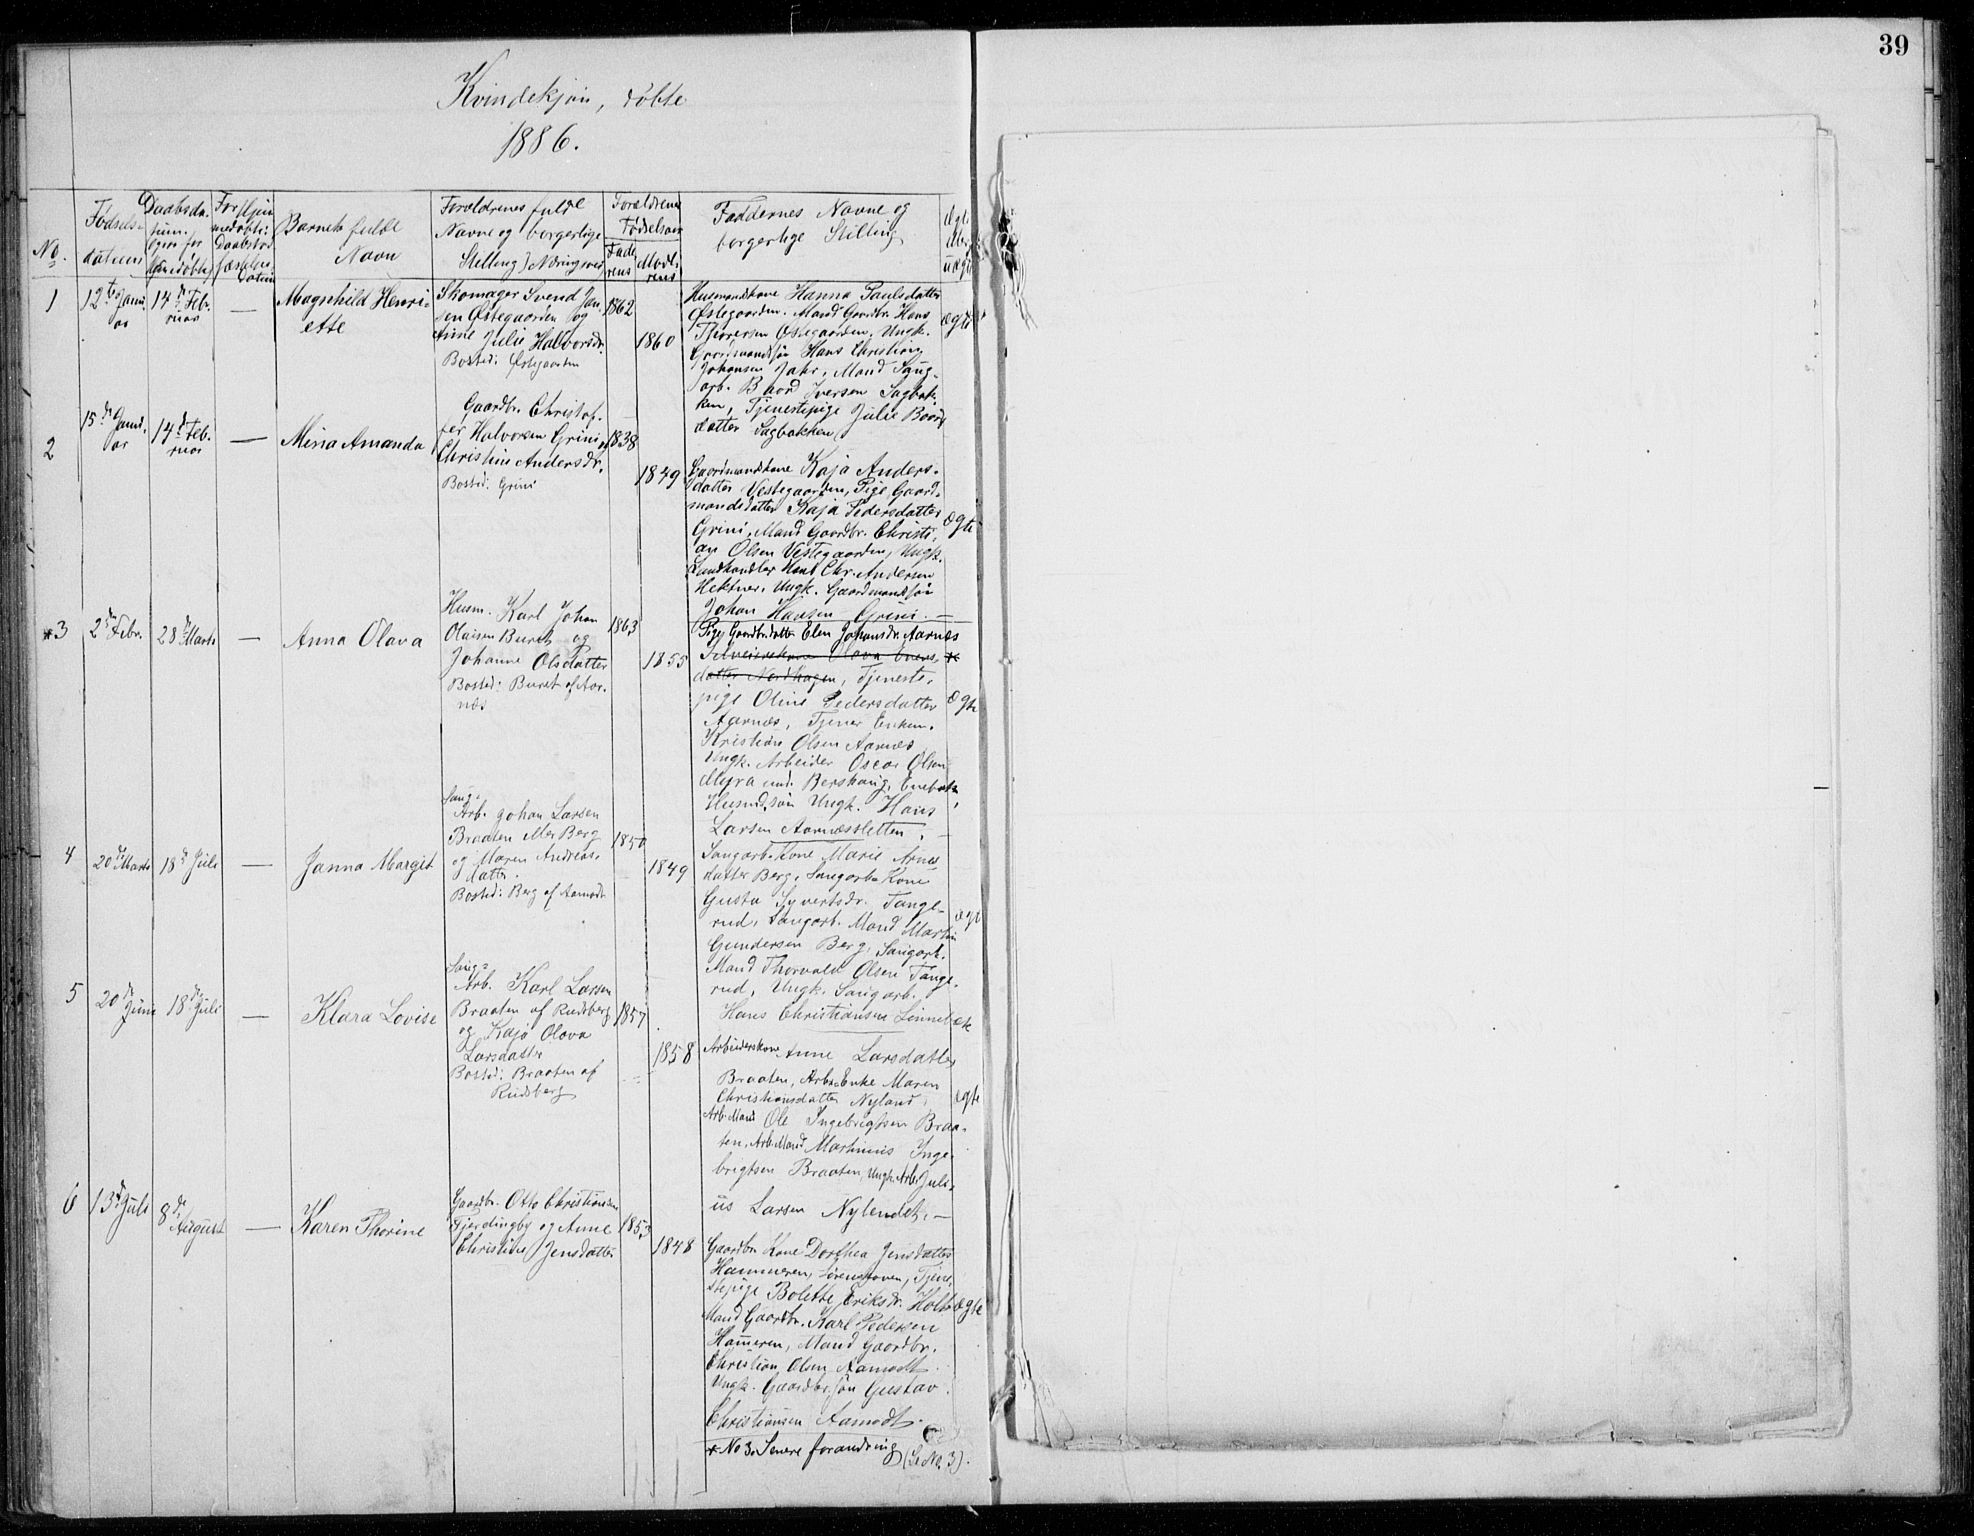 39
Kvindekjøn, døbte
1886.
No.
Fødsels-
datum
Daabsda-
tum,
ogsaa for
hjemmedøbte
For hjem
medøbte:
Daabsstad
fæstelses
Datum
Barnets fulde
Navn
Forældrenes fulde
Navne og borgerlige
Stilling (Næringsvei)
Forældrenes
Fødselsaar
Fade-
rens
Mode-
rens
Faddernes Navne og
borgerlige Stilling
Ægte
eller
uægte
1
12te Janu-
ar
14de Feb-
ruar
—
Magnhild Henri-
ette
Skomager Svend Jan-
sen Østegaarden og
Anne Julie Halvorsdr.
Bosted: Østegaarden
1862
1860
Husmandskone Hanna Paulsdatter
Østegaarden. Mand Gaardbr. Hans
Thoresen Østegaarden, Ungk.
Gaardmandssøn Hans Christian
Johansen Jahr, Mand Saug-
arb. Baard Iversen Sagbak-
ken, Tjenestepige Julie Baards
datter Sagbakken
ægte
2
15de Janu-
ar
14de Feb-
ruar
—
Mina Amanda
Gaardbr. Christof-
fer Halvorsen Grini og
Christine Andersdr.
Bosted: Grini
1838
1849
Gaardmandskone Kaja Anders-
datter Vestegaarden, Pige Gaard-
mandsdatter Kaja Pedersdatter
Grini, Mand Gaardbr. Christi-
an Olsen Vestegaarden, Ungk.
Landhandler Hans Chr. Andersen
Hektner, Ungk. Gaardmandssøn
Johan Hansen Grini. —
Ægte
*3
2den Febr.
28de Marts
—
Anna Olava
Husm. Karl Johan
Olaisen Buret og
Johanne Olsdatter
Bosted: Buret af Aar-
næs
1863
1855
Pige Gaardbr.datter Elen Johansdr. Aarnæs
Olava
datter Nordhagen, Tjeneste-
pige Oline Pedersdatter
Aarnæs, Tjener Enkem.
Kristian Olsen Aarnæs
Ungk. Arbeider Oscar Olsen
Myra und. Bershaug, Enebak,
Husmdssøn Ungk. Hans
Larsen Aarnæssletten. —
Ægte
4
20de Marts
18de Juli
—
Janna Margit
Saug-
Arb. Johan Larsen
Braaten Berg
og Maren Andreas-
datter.
Bosted: Berg af Aamodt
1850
1849
Saugarb. Kone Marie Arnes
datter Berg, Saugarb. Kone
Gusta Syvertsdr. Tange-
rud, Saugarb. Mand Martin
Gundersen Berg, Saugarb.
Mand Thorvald Olsen Tange-
rud, Ungk. Saugarb.
Hans Christiansen Linnebæk
ægte
5
20de Juni
18de Juli
—
Klara Lovise
Saug-
Arb. Karl Larsen
Braaten af Rudsberg
og Kaja Olava
Larsdatter
Bosted: Braaten af
Rudsberg
1857
1858
Arbeiderskone Anne Larsdatter
Braaten, Arb. Enke Maren
Christiansdatter Nyland,
Arb. Mand Ole Ingebrigtsen Braa-
ten, Arb. Mand Martinius Inge-
brigtsen Braaten, Ungk. Arb. Juli-
us Larsen Nylendet. —
ægte
6
13de Juli
8de August
—
Karen Thorine
Gaardbr. Otto Christiansen
Fjerdingby og Anne
Christine Jensdatter
1853
1848
Gaardbr. Kone Dorthea Jensdatter
Hammeren, Sørenskoven, Tjene-
stepige Bolette Eriksdr. Holt
Mand Gaardbr. Karl Pedersen
Hammeren, Mand Gaardbr.
Christian Olsen Aamodt
Ungk. Gaardbr. søn Gustav
Christiansen Aamodt.
ægte
* No 3. Senere forandring (Se No. 3).